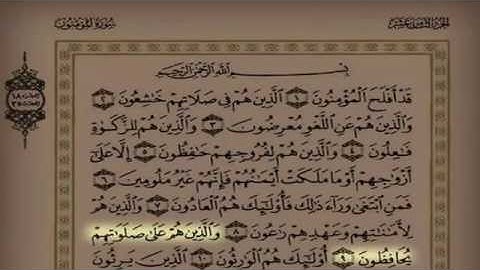 الجزء الثامن عشر
سورة المؤمنون
بِسْمِ اللَّهِ الرَّحْمَٰنِ الرَّحِيمِ
قَدْ أَفْلَحَ الْمُؤْمِنُونَ ١ الَّذِينَ هُمْ فِي صَلَاتِهِمْ خَاشِعُونَ ٢
وَالَّذِينَ هُمْ عَنِ اللَّغْوِ مُعْرِضُونَ ٣ وَالَّذِينَ هُمْ لِلزَّكَوٰةِ
فَاعِلُونَ ٤ وَالَّذِينَ هُمْ لِفُرُوجِهِمْ حَافِظُونَ ٥ إِلَّا عَلَىٰ
أَزْوَاجِهِمْ أَوْ مَا مَلَكَتْ أَيْمَانُهُمْ فَإِنَّهُمْ غَيْرُ مَلُومِينَ ٦
فَمَنِ ابْتَغَىٰ وَرَاءَ ذَٰلِكَ فَأُولَٰئِكَ هُمُ الْعَادُونَ ٧ وَالَّذِينَ هُمْ
لِأَمَانَاتِهِمْ وَعَهْدِهِمْ رَاعُونَ ٨ وَالَّذِينَ هُمْ عَلَىٰ صَلَوَاتِهِمْ
يُحَافِظُونَ ٩ أُولَٰئِكَ هُمُ الْوَارِثُونَ ١٠ الَّذِينَ يَرِثُونَ